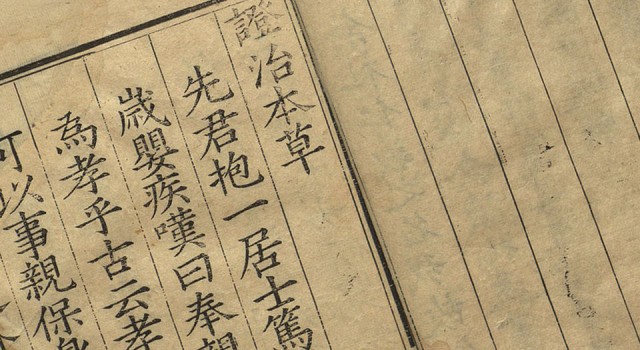 證治本草
先君抱一居士篤
歲嬰疾嘆曰奉親
為孝乎古云孝
可以事親保身